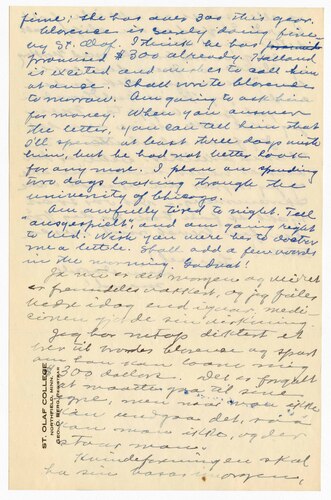 fine; she has over 300 this year.
Clarence is surely doing fine
by St. Olaf. I think he has
promised $300 already. Holland
is excited and wishes to call him
at once. Shall write Clarence
tomorrow. Am going to ask him
for money. When you answer
the letter, you can tell him that
I'll spend at least three days with
him, but he had not better look
for any more. I plan on spending
two days looking through the
university of Chicago.
Am awfully tired to night. Feel
"ausgespielt", and am going right
to bed. Wish you were here to doctor
me a little. Shall add a few words
in the morning. Godnat!
Ja nu er det morgen og veiret
er fremdeles vakkert, og jeg føles
bedre idag end igaar, medi-
cinen gjorde sin virkning.
Jeg har netop diktert et
brev til
om han kan laane mig
300 dollars. Det er
at maatte gaa til sine
egne, men naar man ikke
kan
kan man ikke, og der
staar man.
skal
ha sin
ST. OLAF COLLEGE
NORTHFIELD, MINN.